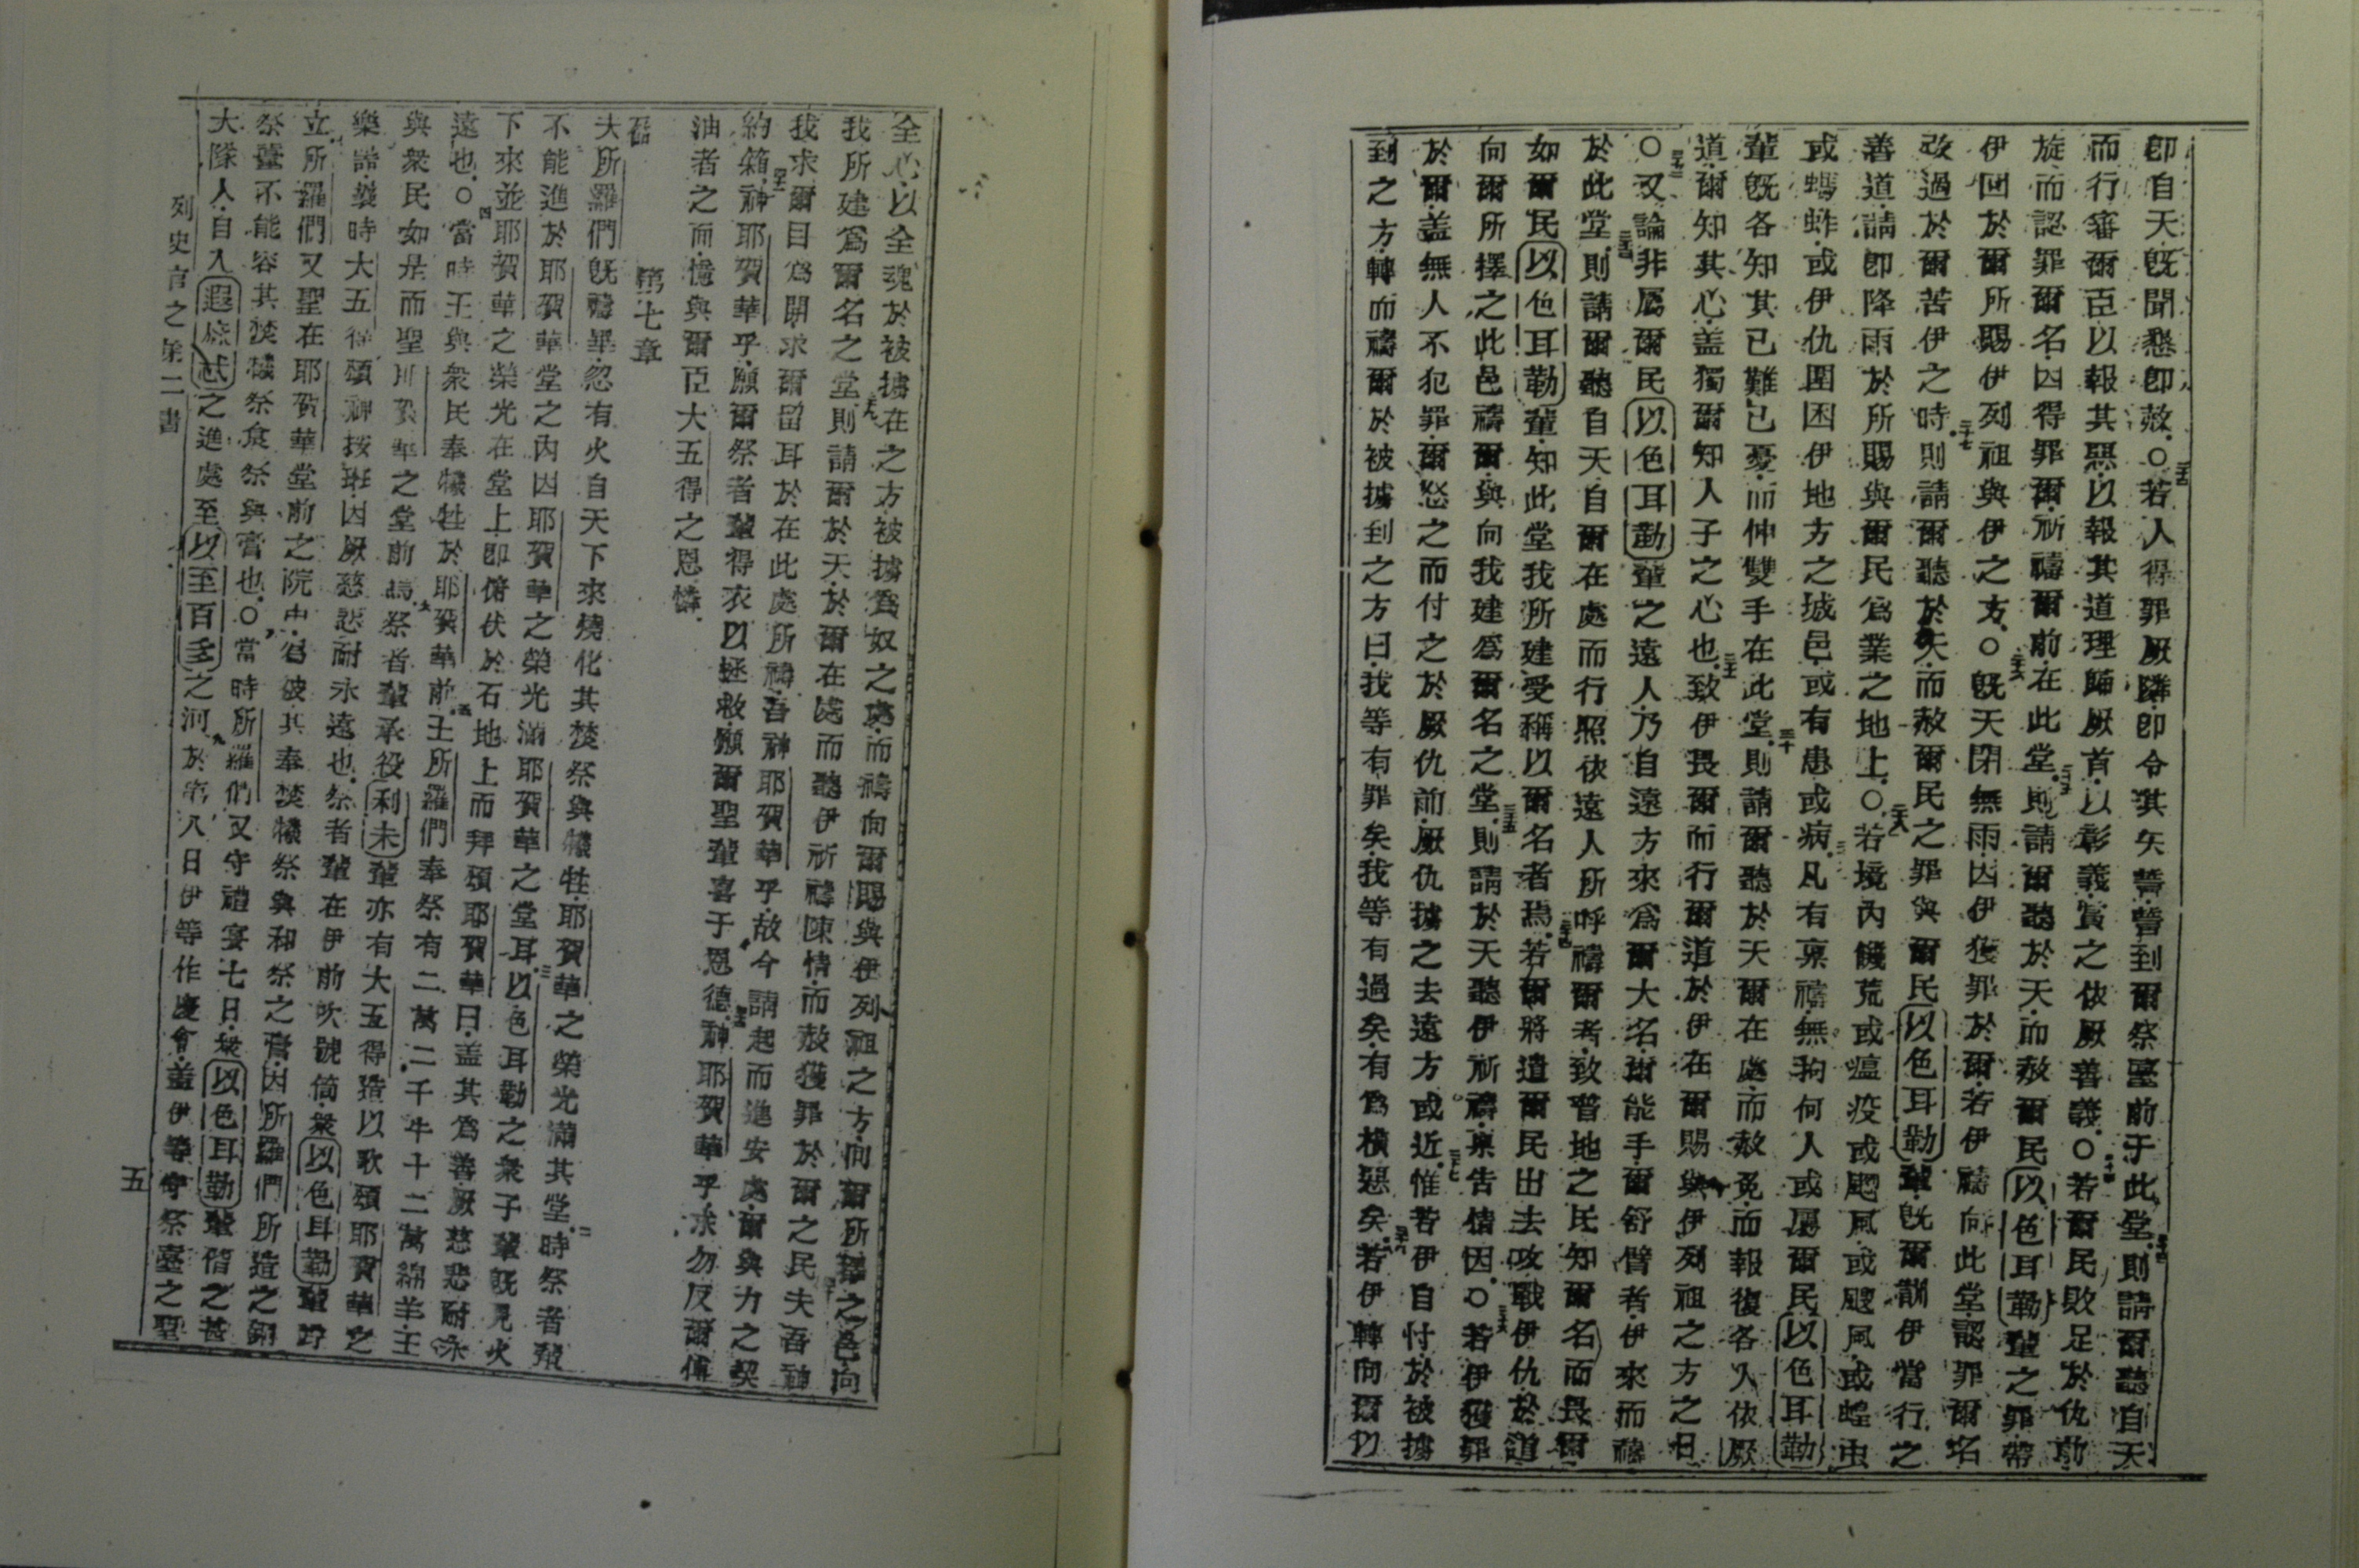 卽自天旣聞懇卽赦○若人得罪厥隣卽令其矢誓誓到爾祭臺前于此堂則請爾聽自天
而行審爾臣以報其惡以報其道理歸厥首以彰義賞之依厥善義○若爾民敗足於仇前
旋而認罪爾名因得罪爾祈禱爾前在此堂則請爾聽於天而赦爾民以色耳勒輩之罪帶
伊回於爾所賜伊列祖與伊之方○旣天閉無雨因伊獲罪於爾若伊禱向此堂認罪爾名
改過於爾苦伊之時則請爾聽於天而赦爾民之罪與爾民以色耳勒輩旣爾訓伊當行之
善道請卽降雨於所賜與爾民爲業之地上○若境內饑荒或瘟疫或颶風或颶風或蝗虫
或螞蚱或伊仇圍困伊地方之城邑或有患或病凡有禀禱無拘何人或屬爾民以色耳勒
輩旣各知其己難己憂而伸雙手在此堂則請爾聽於天爾在處而赦免而報復各人依厥
道爾知其心盖獨爾知人子之心也致伊畏爾而行爾道於伊在爾賜與伊列祖之方之日
○又論非屬爾民以色耳勒輩之遠人乃自遠方來爲爾大名爾能手爾舒臂者伊來而禱
於此堂則請爾聽自天自爾在處而行照依遠人所呼禱爾者致普地之民知爾名而畏爾
如爾民以色耳勒輩知此堂我所建受稱以爾名者焉若爾將遣爾民出去攻戰伊仇於道
向爾所擇之此邑禱爾與向我建爲爾名之堂則請於天聽伊祈禱禀告情因○若伊獲罪
於爾盖無人不犯罪爾怒之而付之於厥仇前厥仇擄之去遠方或近惟若伊自忖於被擄
到之方轉而禱爾於被擄到之方曰我等有罪矣我等有過矣有爲橫惡矣若伊轉向爾以
全心以全魂於被擄在之方被擄爲奴之處而禱向爾賜與伊列祖之方向爾所擇之邑向
我所建爲爾名之堂則請爾於天於爾在處而聽伊祈禱陳情而赦獲罪於爾之民夫吾神
我求爾目爲開求爾留耳於在此處所禱吾神耶賀華乎故今請起而進安處爾與力之契
約箱神耶賀華乎願爾祭者輩得衣以拯救願爾聖輩喜于恩德神耶賀華乎求勿反爾傅
油者之而憶與爾臣大五得之恩憐
第七章
夫所羅們旣禱畢忽有火自天下來燒化其焚祭與犧牲耶賀華之榮光滿其堂時祭者輩
不能進於耶賀華堂之內因耶賀華之榮光滿耶賀華之堂耳以色耳勒之衆子輩旣見火
下來並耶賀華之榮光在堂上卽俯伏於石地上而拜頌耶賀華曰盖其爲善厥慈悲耐永
遠也○當時王與衆民奉犧牲於耶賀華前王所羅們奉祭有二萬二千牛十二萬綿羊王
與衆民如是而聖耶賀華之堂前焉祭者輩承役利未輩亦有大五得造以歌頌耶賀華之
樂噐義時大五得頌神按班因厥慈悲耐永遠也祭者輩在伊前吹號筒衆以色耳勒輩皆
立所羅們又聖在耶賀華堂前之院中爲彼其奉焚犧祭與和祭之膏因所羅們所造之銅
祭臺不能容其焚犧祭食祭與膏也○當時所羅們又守禮宴七日衆以色耳勒輩偕之甚
大隊人自入遐麻忒之進處至以至百多之河於第八日伊等作慶會盖伊等守祭臺之聖
列史言之第二書
五